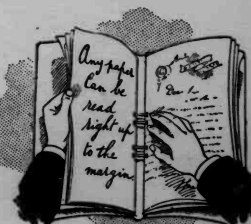 Any paper
Can be
read
right up
to the
margin.